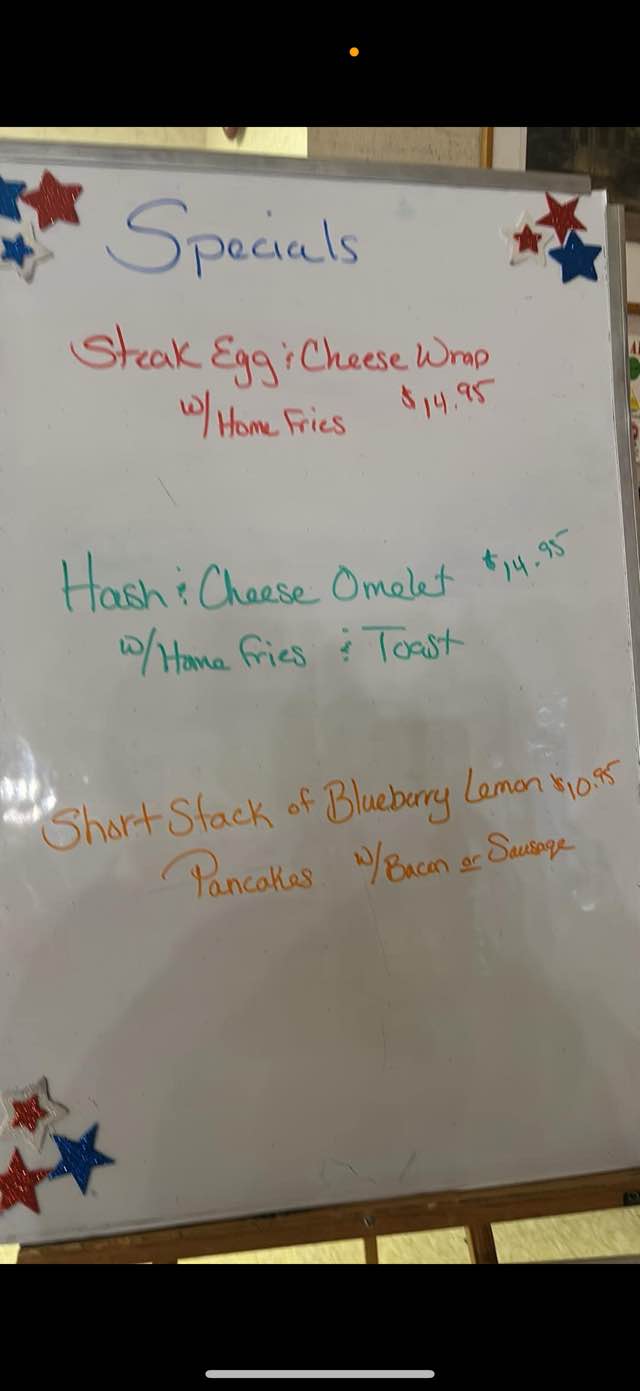 Specials
Steak Egg & Cheese Wrap
w/ Home Fries $14.95
Hash & Cheese Omelet $14.95
w/ Home Fries & Toast
Short Stack of Blueberry Lemon $10.95
Pancakes w/ Bacon or Sausage